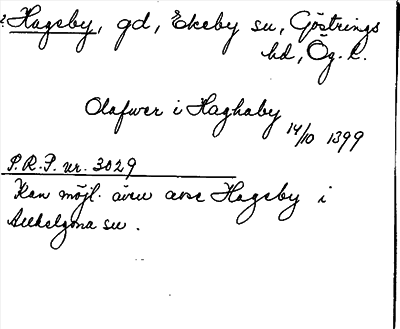 ? Hageby, gd, Ekeby sn, Göstrings
hd, Ög. l.
Olafwer i Haghaby
14/10 1399
P.R.P. nr. 3029
Kan möjl. även avse Hageby i
Allhelgona sn.